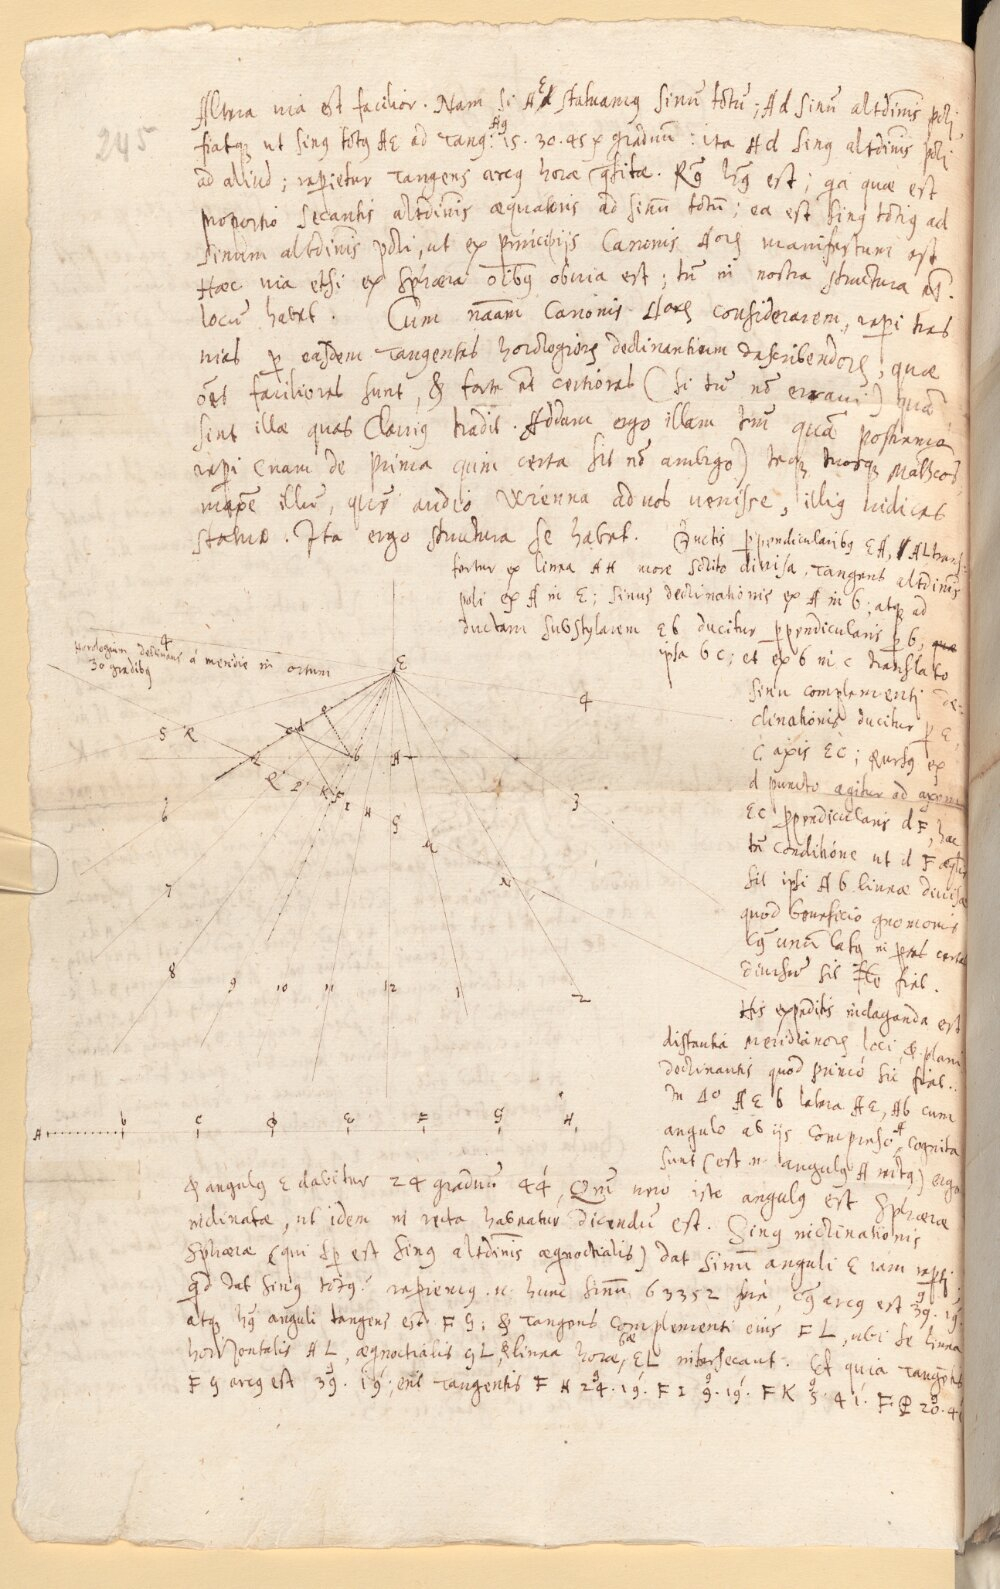 245
Altera via est facilior. Nam si AE statuamus sinū totū; Ad sinū altdinis poli
fiatqz ut sinus totus AE ad Tang: Ag 15. 30. 45 graduū: ita Ad sinus altdinis poli
ad aliud; reperietur tangens arcus horae qsitae. Rō hus est; qa quae est
proportio secantis altdinis aequatoris ad sinū totū; ea est sinus totius ad
sinum altdinis poli, ut ex principijs Canonis manifestum est
Haec via etsi ex sphaera oibus obvia est; tn in nostra structura nō
locū habet. Cum nāam Canonis considerarem, reperi tres
vias p easdem tangentes horologiorū declinantium describendorū, quae
oēs faciliores sunt, & forte et certiores (si tn nō erravi) quā
sint illae quas Clavius tradit. Addam ergo illam tm quā postremā
reperi (nam de prima quin certa sit nō ambigo)
maxe illū, quē audio Vienna ad nos venisse, illius iudices
statuo. Ita ergo structura se habet. Ductis ppendicularibus EA, AL trans-
fertur ex linea AH more solito divisa, tangens altdinis
poli ex A in E; sinus declinationis ex A in b; atqz ad
ductam substylarem Eb ducitur ppendicularis p b,
ipsa bc; et ex b in c translato
sinu complementi de-
clinationis ducitur p E,
C axis EC; Rursus ex
d puncto agitur ad axem
EC ppendicularis dF, hac
tn conditione ut dF aeqlis
sit ipsi Ab lineae divisae
quod beneficio gnomonis
cus unū latus in
fiat.
His expeditis indaganda est
distantia meridianorū loci, & plani
declinantis quod primo sic fiat.
In Ao AEb latera AE, Ab cum
angulo ab ijs compreso A, cognita
sunt (est n. angulus A rectus) ergo
& angulus E dabitur 24 graduū 44, Qm vero iste angulus est sphaerae
inclinatae, ut idem in recta habeatur dicendū est. Sinus inclinationis
sphaerae (qui sp est sinus altdinis aeqnoctialis) dat sinū anguli E iam reperti,
qd dat sinus totus? reperiemus n. hunc sinū 63352 ferè, cus arcus est 39. 19.
atqz hus anguli tangens est Fg; & tangens complementi eius FL, ubi se linea
horizontalis AL, aeqnoctialis gL, & linea horae 6ae EL intersecant. Et quia tangentis
Fg arcus est 39. 19; erit tangentis FH 24. 19. FI 9. 19. FK 5. 41. F 20. 41
horologium declinans a meridie in ortum
30 gradibus
E
4
5
R
A
b
6
3
7
8
9
10
11
12
1
2
A b C D E F G H